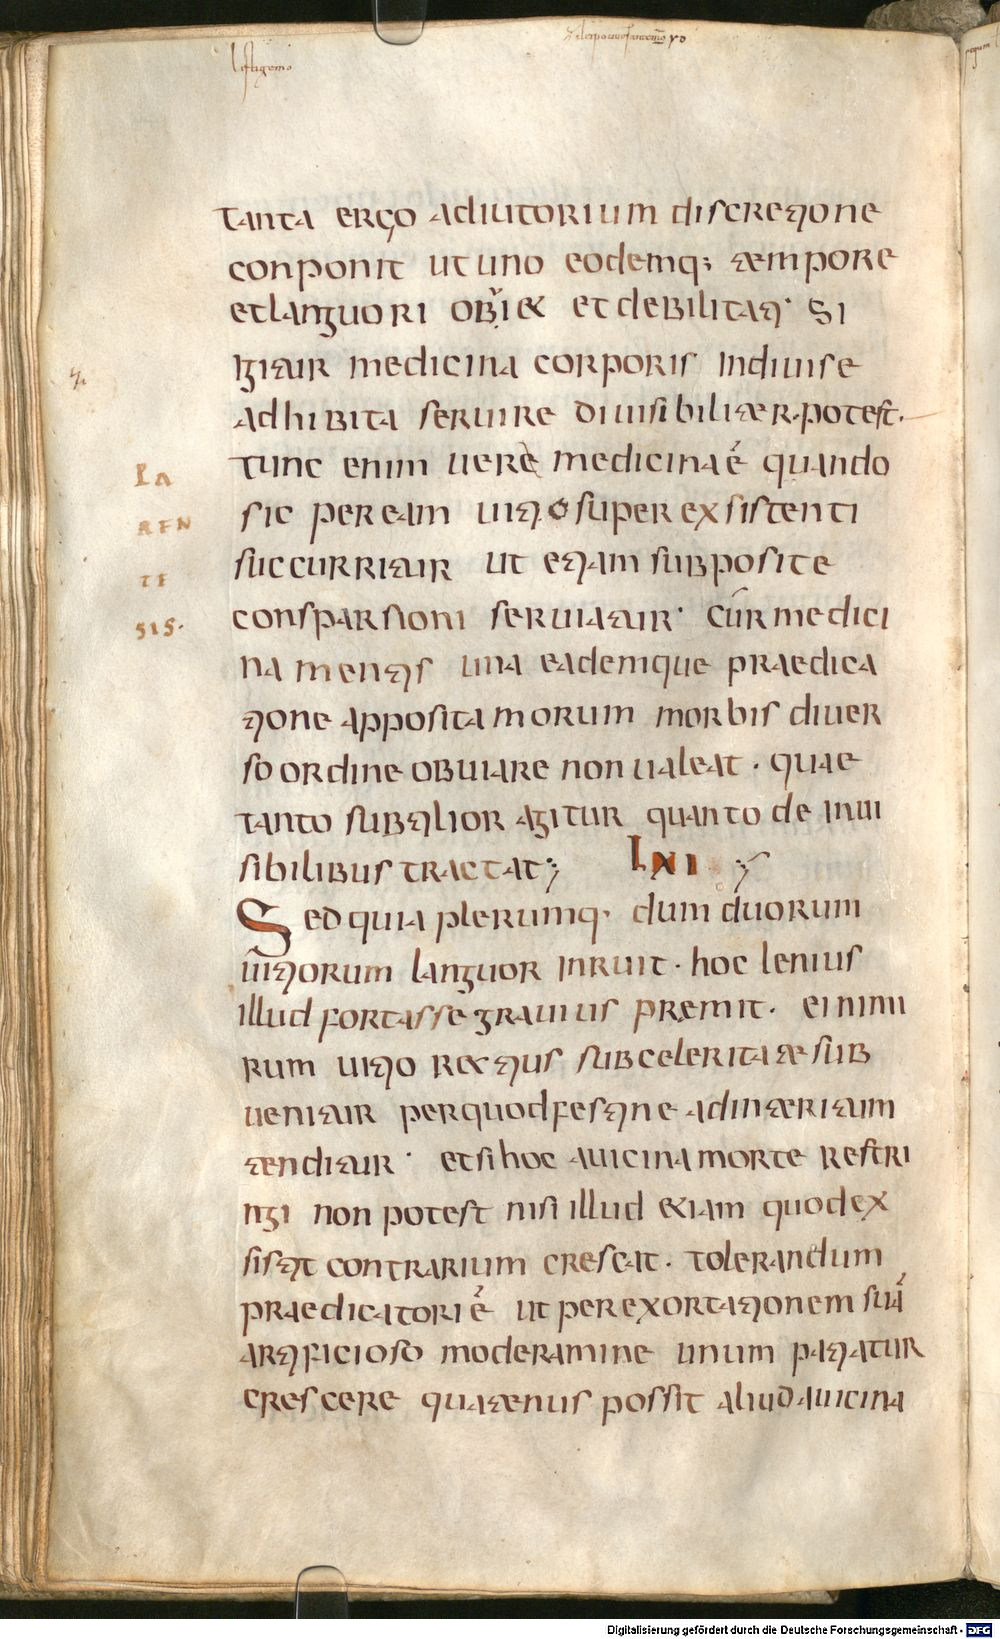 tanta ergo adiutorium discretione
conponit ut uno eodemq; tempore
et languori obuiet et debilitati· Si
igitur medicina corporis indiuise
adhibita seruire diuisibiliter potest.
tunc enim uere medicina ē quando
sic per eam uitio superexsistenti
succurritur ut etiam subposite
consparsioni seruiatur· Cur medici
na mentis una eademque praedica
tione apposita morum morbis diuer
so ordine obuiare non ualeat. quae
tanto subtilior agitur quanto de inui
sibilibus tractat; LXI ;
Sed quia plerumq· dum duorum
uitiorum languor inruit. hoc lenius
illud fortasse grauius premit. ei nimi
rum uitio rectius sub celeritate sub
uenitur per quod festine ad interitum
tenditur· et si hoc a uicina morte restri
ngi non potest nisi illud etiam quod ex
sistit contrarium crescat. tolerandum
praedicatori ē ut per exortationem suā
artificioso moderamine unum patiatur
crescere quatenus possit aliud a uicina
LA
REN
TE
SIS·
Digitalisierung gefördert durch die Deutsche Forschungsgemeinschaft - DFG